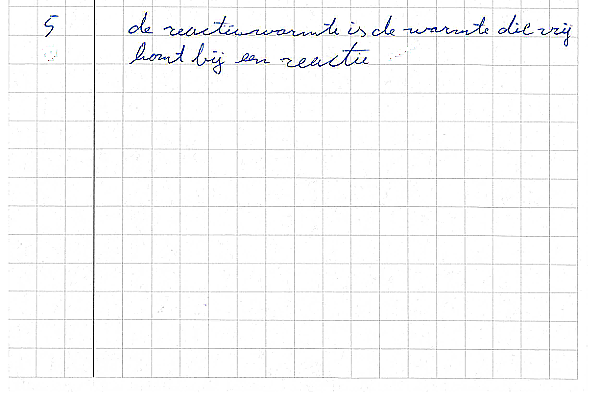 5 de reactiewarmte is de warmte die vrij
komt bij een reactie